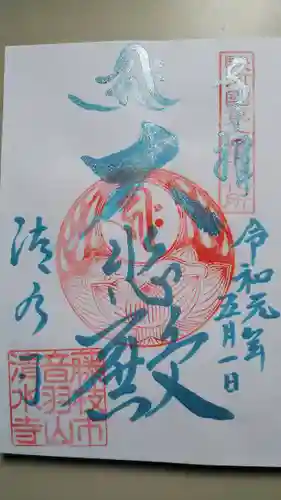 奉拝
令和元年
五月一日
大悲殿
清水寺
藤枝市
音羽山
清水寺